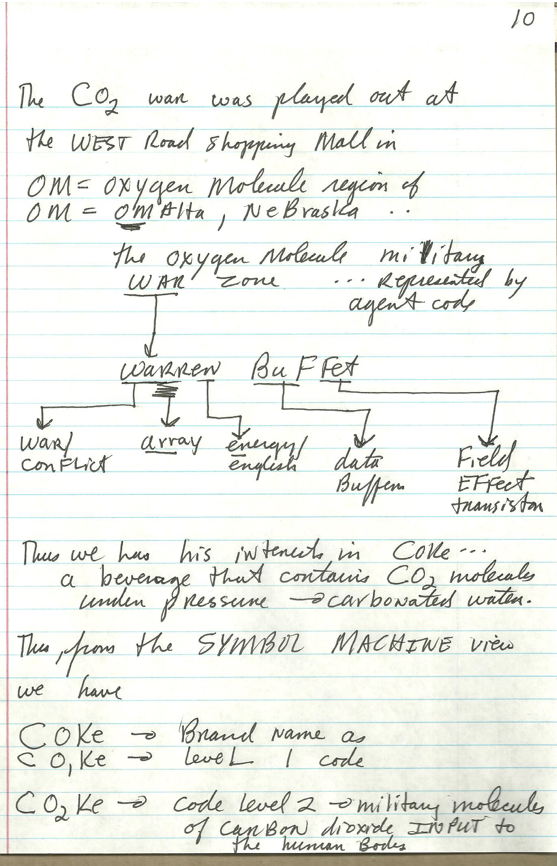 10
The CO2 war was played out at
the WEST Road Shopping Mall in
OM = oxygen molecule region of
OM = OMAHa, NeBraska ..
the oxygen Molecule military
WAR zone ... represented by
agent code
WARREN BuFFet
war/
conFLict
array
energy/
english
data
Buffer
Field
EFFect
transistor
Thus we has his interests in COKe ...
a beverage that contains CO2 molecules
under pressure → carbonated water.
Thus, from the SYMBOL MACHINE view
we have
COKe → Brand name as
CO,Ke → leveL 1 code
CO2Ke → code level 2 → military molecules
of carBon dioxide INPUT to
the human Bodes